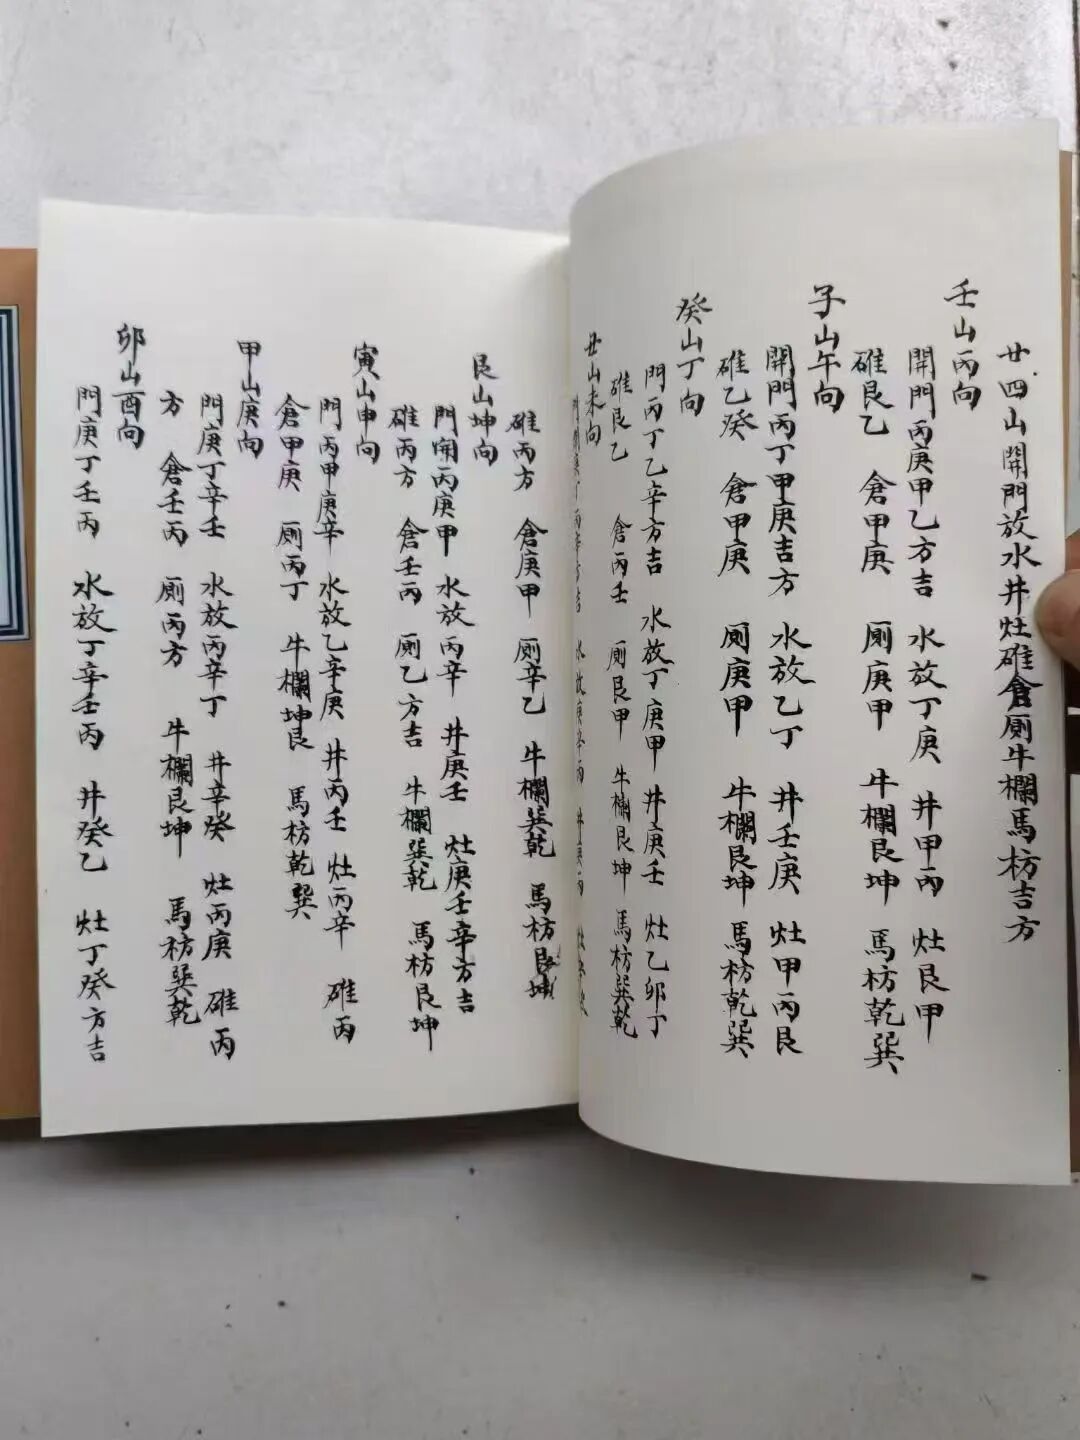 廿四山開門放水井灶碓倉厠牛欄馬枋吉方
壬山丙向
開門丙庚甲乙方吉 水放丁庚 井甲丙 灶艮甲
碓艮乙 倉甲庚 厠庚甲 牛欄艮坤 馬枋乾巽
子山午向
開門丙丁甲庚吉方 水放乙丁 井壬庚 灶甲丙艮
碓乙癸 倉甲庚 厠庚甲 牛欄艮坤 馬枋乾巽
癸山丁向
門丙丁乙辛方吉 水放丁庚甲 井庚壬 灶乙卯丁
碓艮乙 倉丙壬 厠艮甲 牛欄艮坤 馬枋巽乾
丑山未向
丁丙辛方吉 水放庚 丙 井庚丙
碓丙方 倉庚甲 厠辛乙 牛欄巽乾 馬枋艮坤
艮山坤向
門開丙庚甲 水放丙辛 井庚壬 灶庚壬辛方吉
碓丙方 倉壬丙 厠乙方吉 牛欄巽乾 馬枋艮坤
寅山申向
門丙甲庚辛 水放乙辛庚 井丙壬 灶丙辛 碓丙
倉甲庚 厠丙丁 牛欄坤艮 馬枋乾巽
甲山庚向
門庚丁辛壬 水放丙辛丁 井辛癸 灶丙庚 碓丙
方 倉壬丙 厠丙方 牛欄艮坤 馬枋巽乾
卯山酉向
門庚丁壬丙 水放丁辛壬丙 井癸乙 灶丁癸方吉